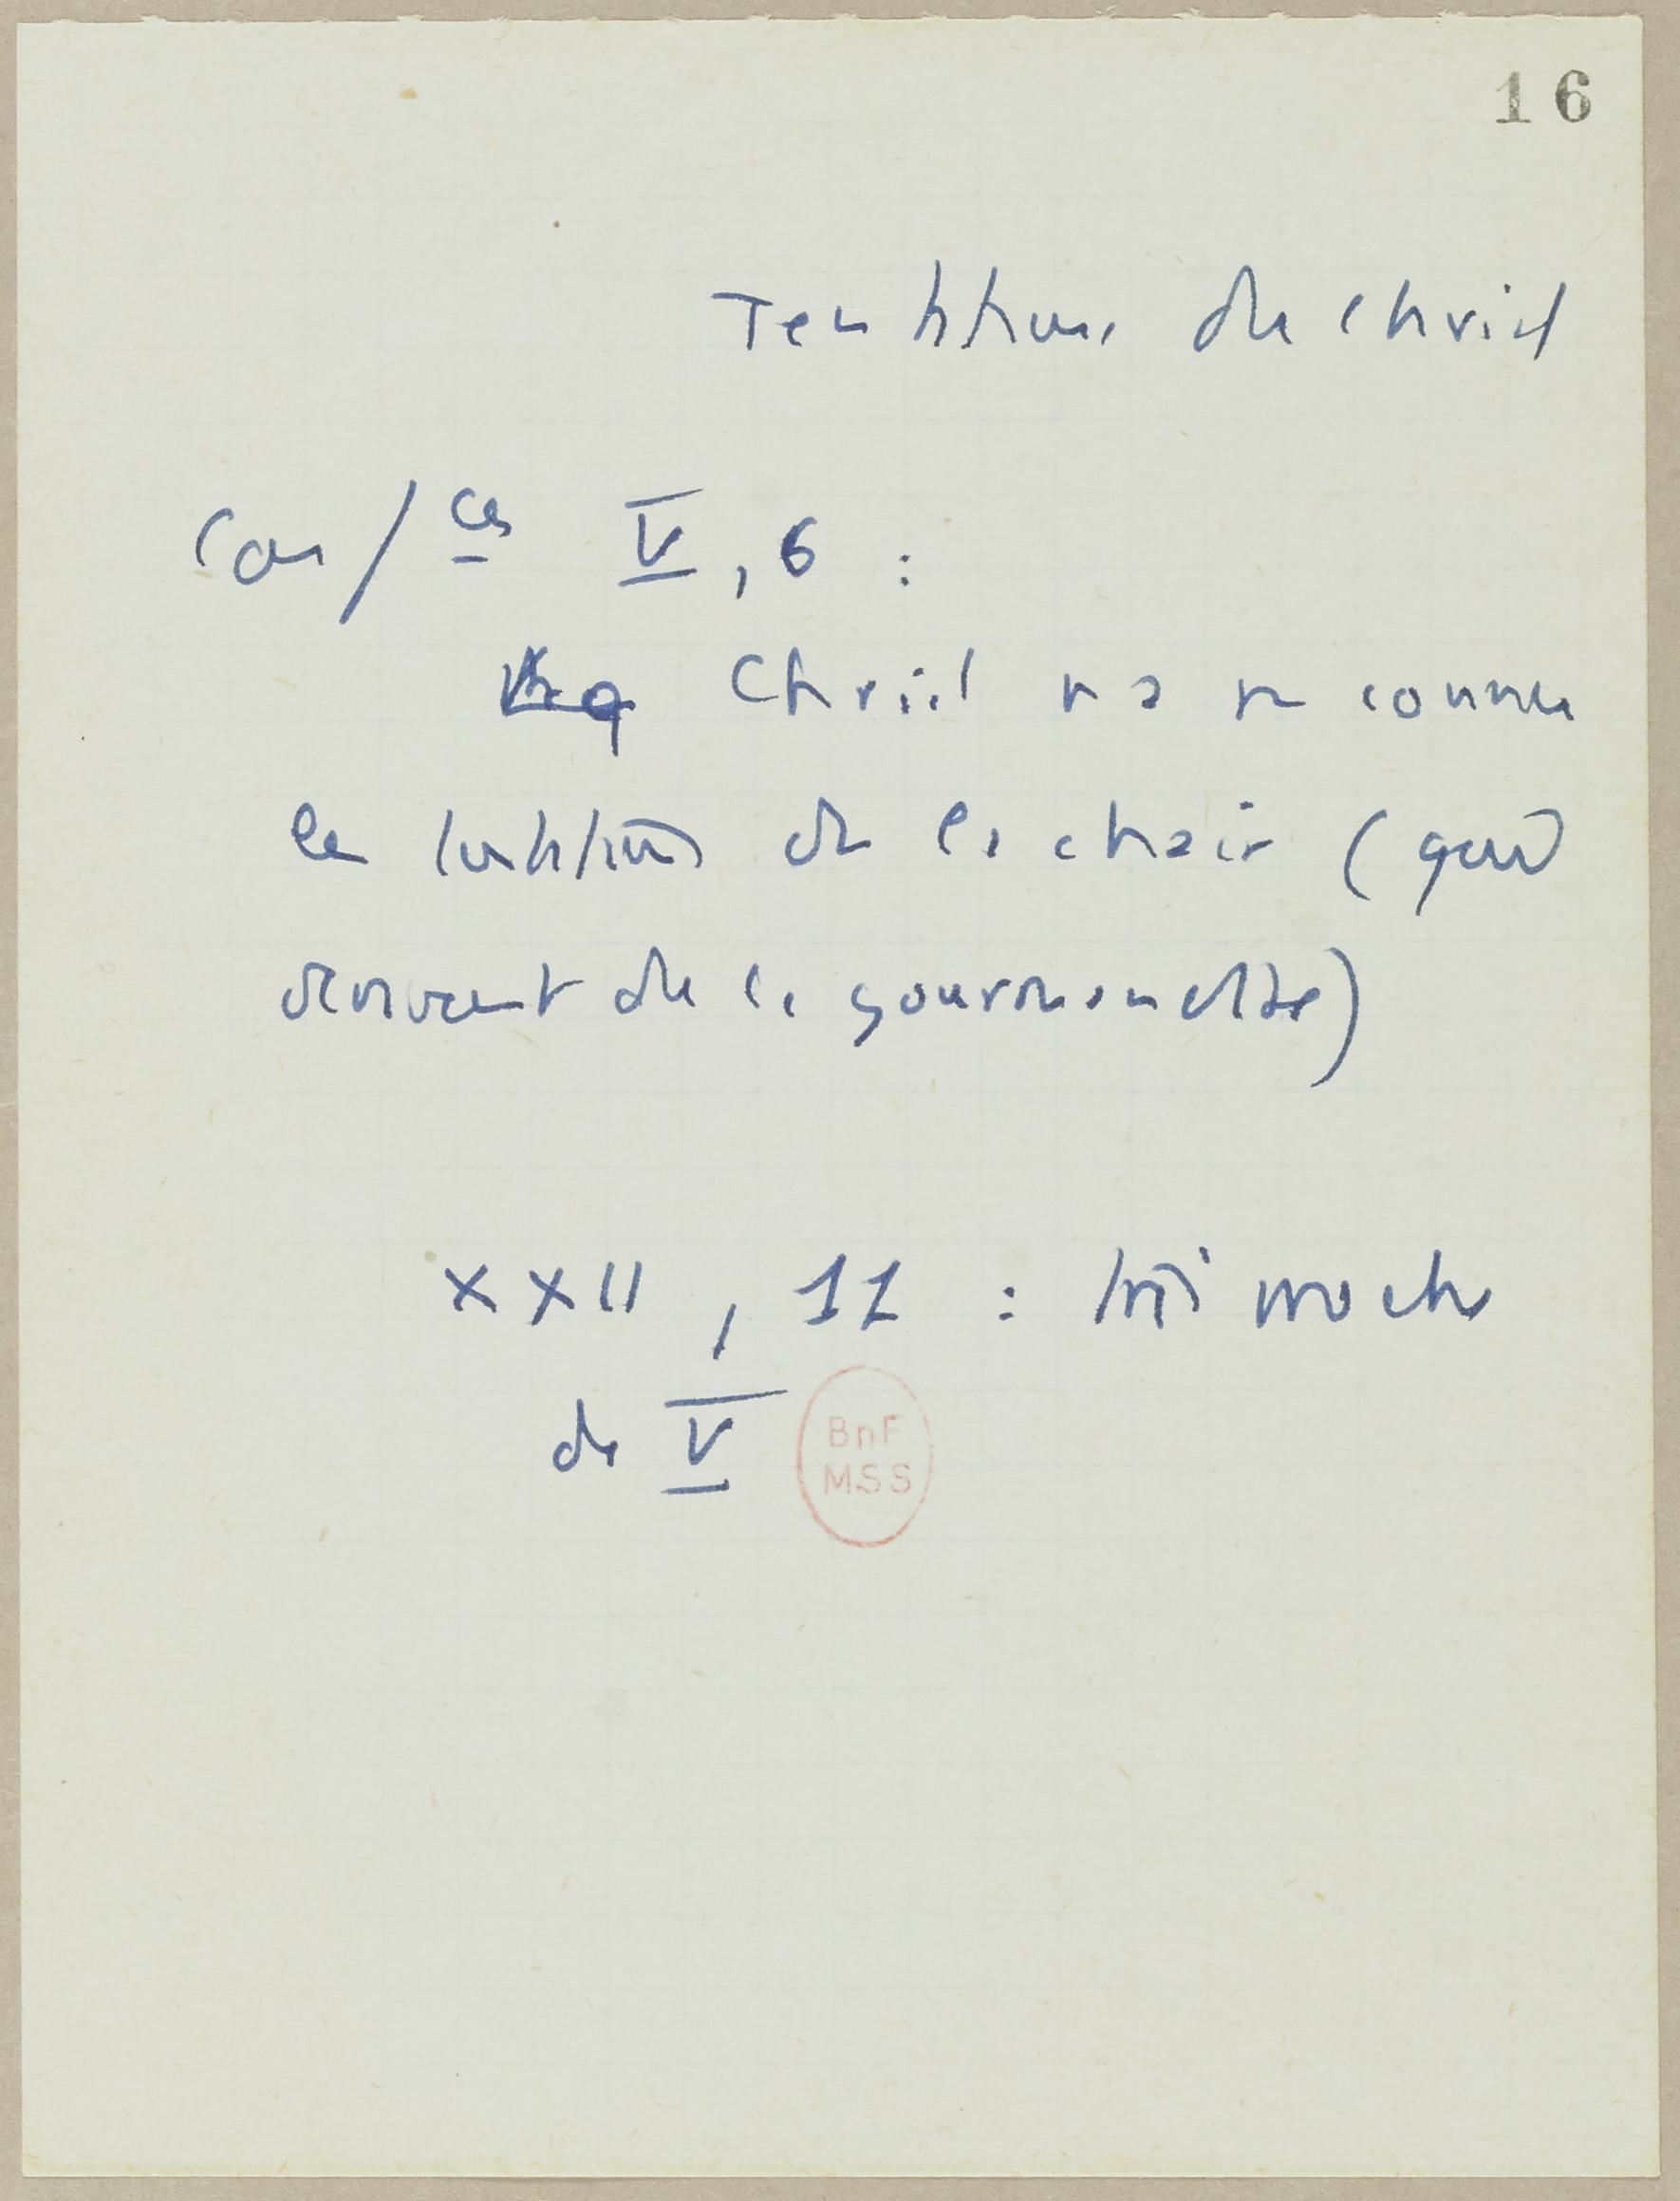 16
Tentations du Christ
Conf ces V, 6 :
Christ n'a pas connu
la tentation de la chair (qui
devient de la gourmandise)
XXII, 11 : très proche
de V
BnF
MSS